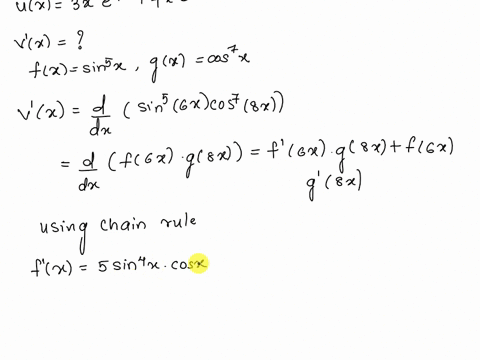 u(x) = 3x e
v'(x) = ?
f(x) = sin⁵x , g(x) = cos⁷x
v'(x) = d/dx (sin⁵(6x)cos⁷(8x))
= d/dx (f(6x)·g(8x)) = f'(6x)·g(8x) + f(6x)
g'(8x)
using chain rule
f'(x) = 5 sin⁴x · cosx